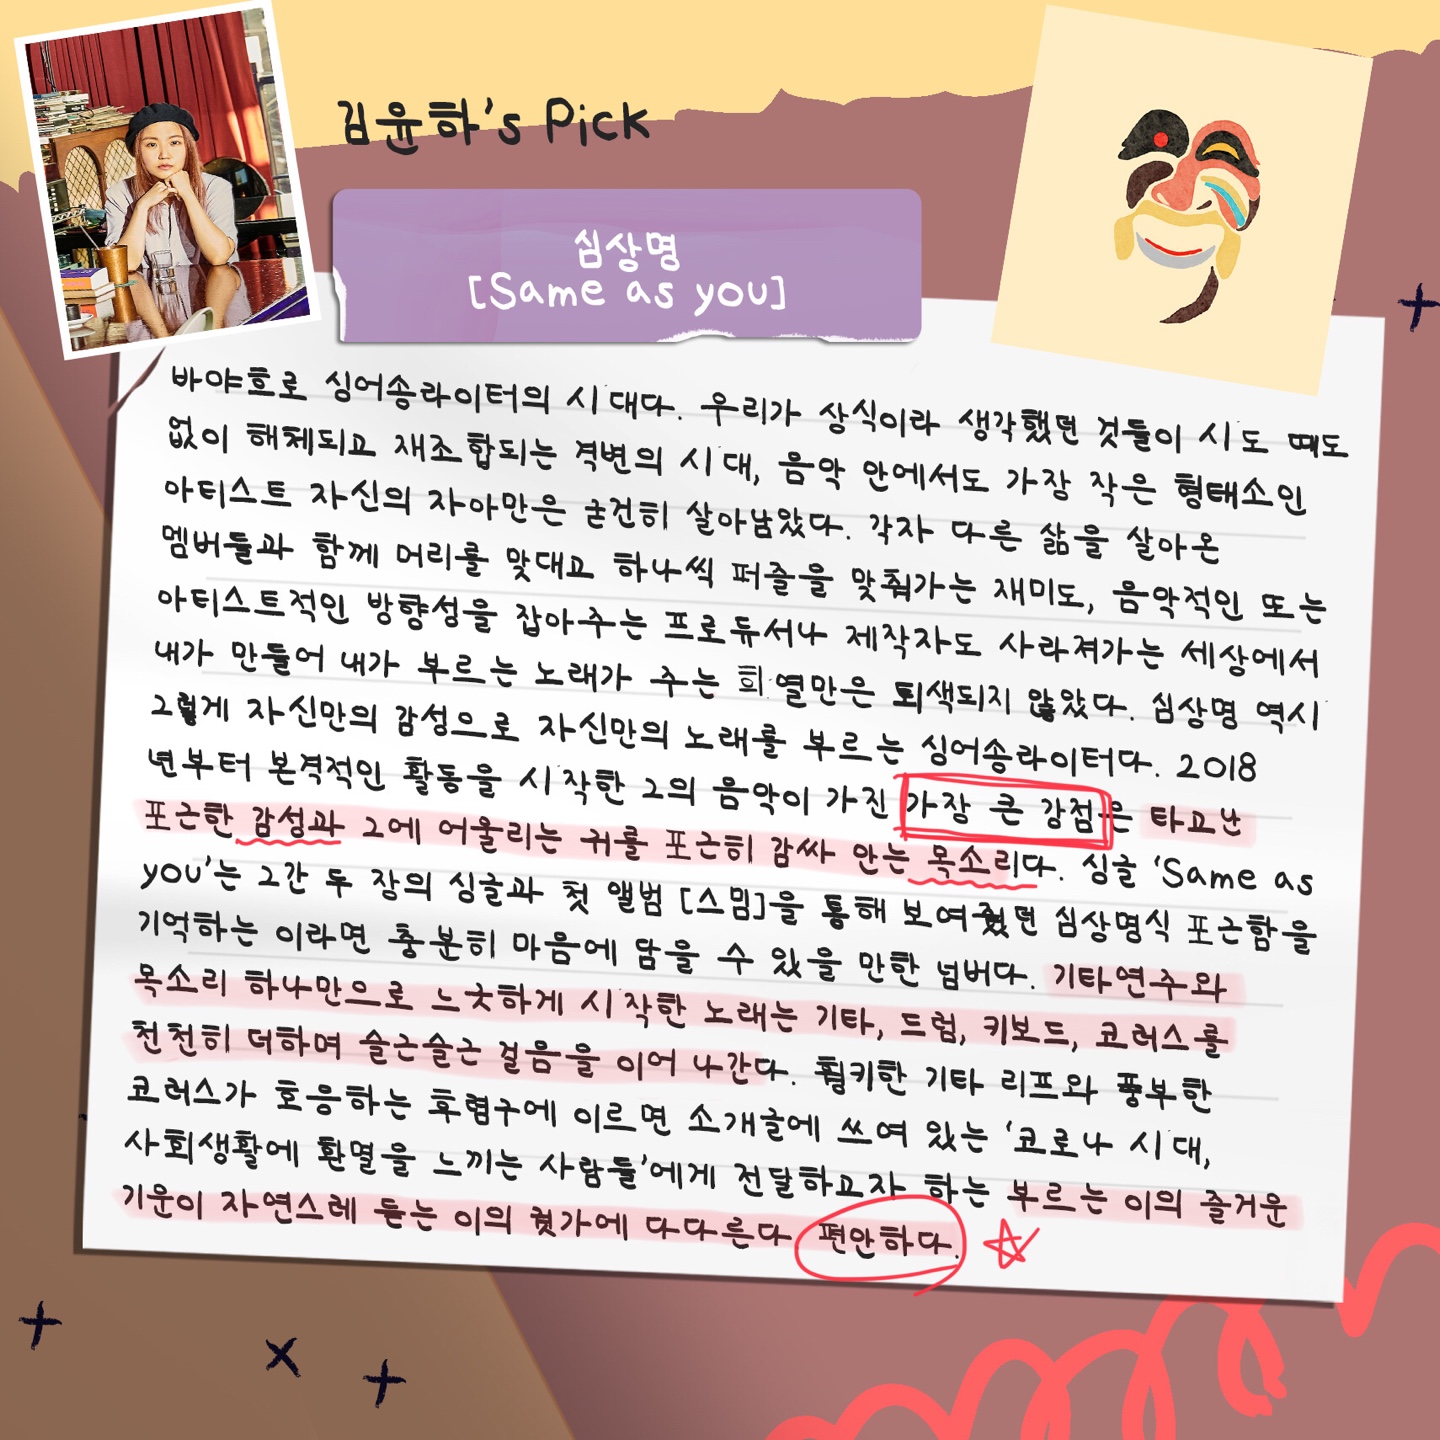 김윤하's Pick
심상명
[Same as you]
바야흐로 싱어송라이터의 시대다. 우리가 상식이라 생각했던 것들이 시도 때도
없이 해체되고 재조합되는 격변의 시대, 음악 안에서도 가장 작은 형태소인
아티스트 자신의 자아만은 굳건히 살아남았다. 각자 다른 삶을 살아온
멤버들과 함께 머리를 맞대고 하나씩 퍼즐을 맞춰가는 재미도, 음악적인 또는
아티스트적인 방향성을 잡아주는 프로듀서나 제작자도 사라져가는 세상에서
내가 만들어 내가 부르는 노래가 주는 희열만은 퇴색되지 않았다. 심상명 역시
그렇게 자신만의 감성으로 자신만의 노래를 부르는 싱어송라이터다. 2018
년부터 본격적인 활동을 시작한 그의 음악이 가진 가장 큰 강점은 타고난
포근한 감성과 그에 어울리는 귀를 포근히 감싸 안는 목소리다. 싱글 'Same as
you'는 그간 두 장의 싱글과 첫 앨범 [스밈]을 통해 보여줬던 심상명식 포근함을
기억하는 이라면 충분히 마음에 담을 수 있을 만한 넘버다. 기타연주와
목소리 하나만으로 느긋하게 시작한 노래는 기타, 드럼, 키보드, 코러스를
천천히 더하며 슬근슬근 걸음을 이어 나간다. 훵키한 기타 리프와 풍부한
코러스가 호응하는 후렴구에 이르면 소개글에 쓰여 있는 '코로나 시대,
사회생활에 환멸을 느끼는 사람들'에게 전달하고자 하는 부르는 이의 즐거운
기운이 자연스레 듣는 이의 귓가에 다다른다. 편안하다.